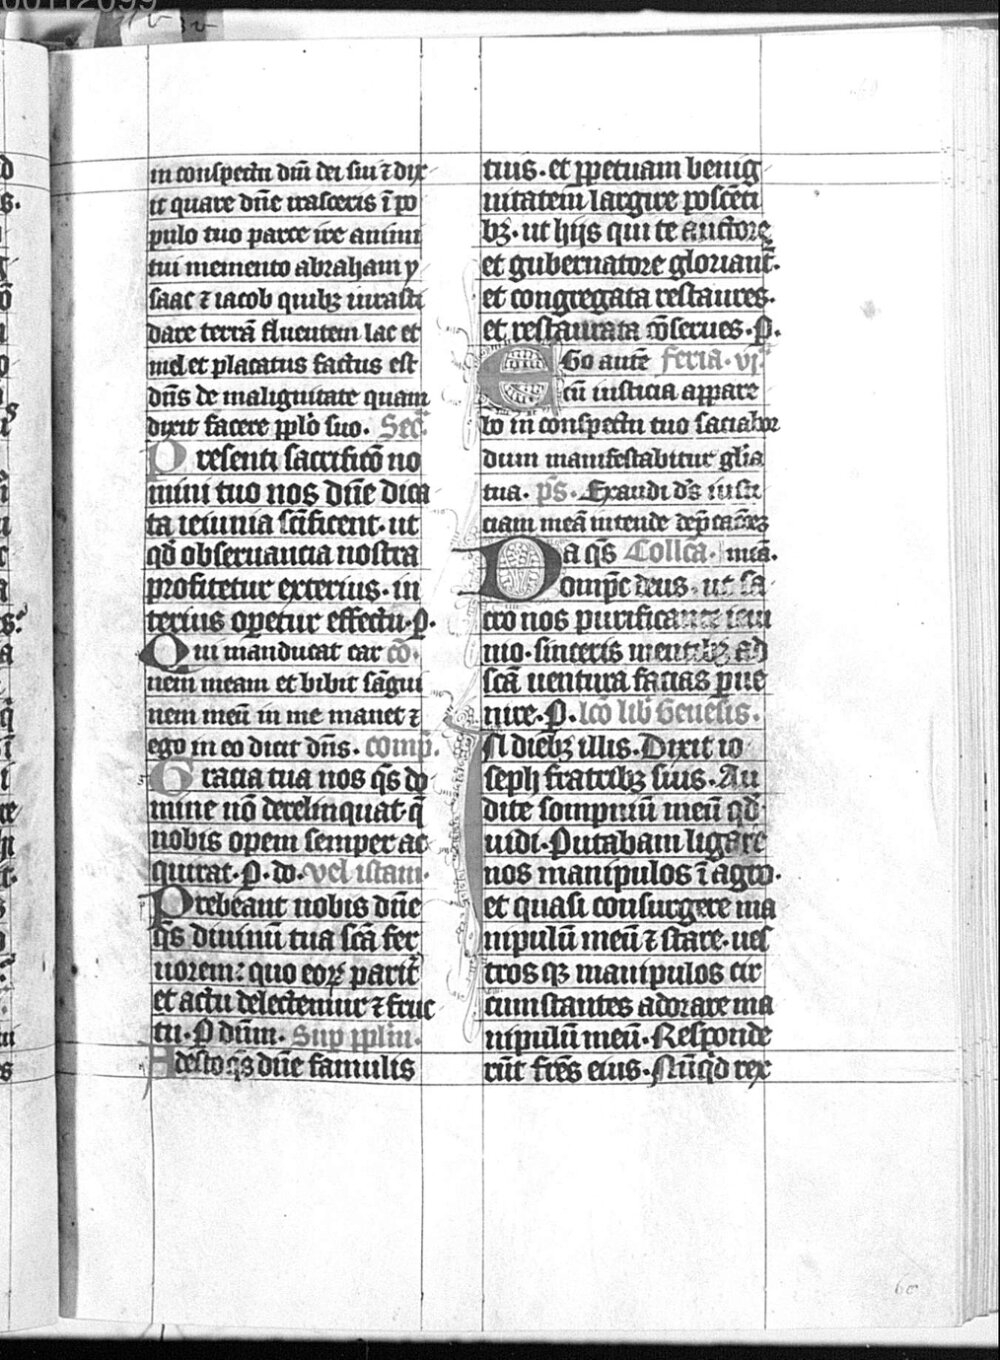 in conspectu dm̄ dei sui ⁊ dix
it quare dn̄e irasceris ī po
pulo tuo parce ire animi
tui memento abraham y
saac ⁊ iacob quibꝫ iurasti
dare terrā fluentem lac et
mel et placatus factus est
dn̄s de malignitate quam
dixit facere pplō suo. Sec̄.
Presenti sacrificō no
mini tuo nos dn̄e dica
ta ieiunia sc̄ificent. ut
qd̄ obseruancia nostra
profitetur exterius. in
terius oꝑetur effectu. P.
Qui manducat car cō.
nem meam et bibit sāgui
nem meū in me manet ⁊
ego in eo dicit dn̄s. comp̄.
Gracia tua nos qs̄ do
mine nō derelinquat. q̄
nobis opem semper ac
quirat. P. do. vel istam.
Prebeant nobis dn̄e
qs̄ diuinū tua sc̄a fer
uorem: quo eoꝝ parit̄
et actu delectemur ⁊ fruc
tu. P dn̄m. Sup pplm̄.
Adesto qs̄ dn̄e famulis
tuis. et ꝑpetuam benig
nitatem largire poscēti
bꝫ. ut hijs qui te auctore
et gubernatore gloriant̄.
et congregata restaures.
et restaurata cōserues. P.
Ego autē feria. vj.
cū iusticia appare
bo in conspectu tuo saciabor
dum manifestabitur glīa
tua. ps̄. Exaudi ds̄ iusti
ciam meā intende dep̄cac̄o&#x0304;ez
Da qs̄ Collc̄a. meā.
omp̄c deus. ut sa
cro nos purificante ieiu
nio. sinceris mentibꝫ ad
sc̄a uentura facias ꝑue
nire. P. lcō lib̄ Genesis.
In diebꝫ illis. Dixit io
seph fratribꝫ suis. Au
dite sompniū meū qd̄
uidi. Putabam ligare
nos manipulos ī agro.
et quasi consurgere ma
nipulū meū ⁊ stare. ues
tros qꝫ manipulos cir
cumstantes adorare ma
nipulū meū. Responde
rūt frēs eius. Nūqd̄ rex
60